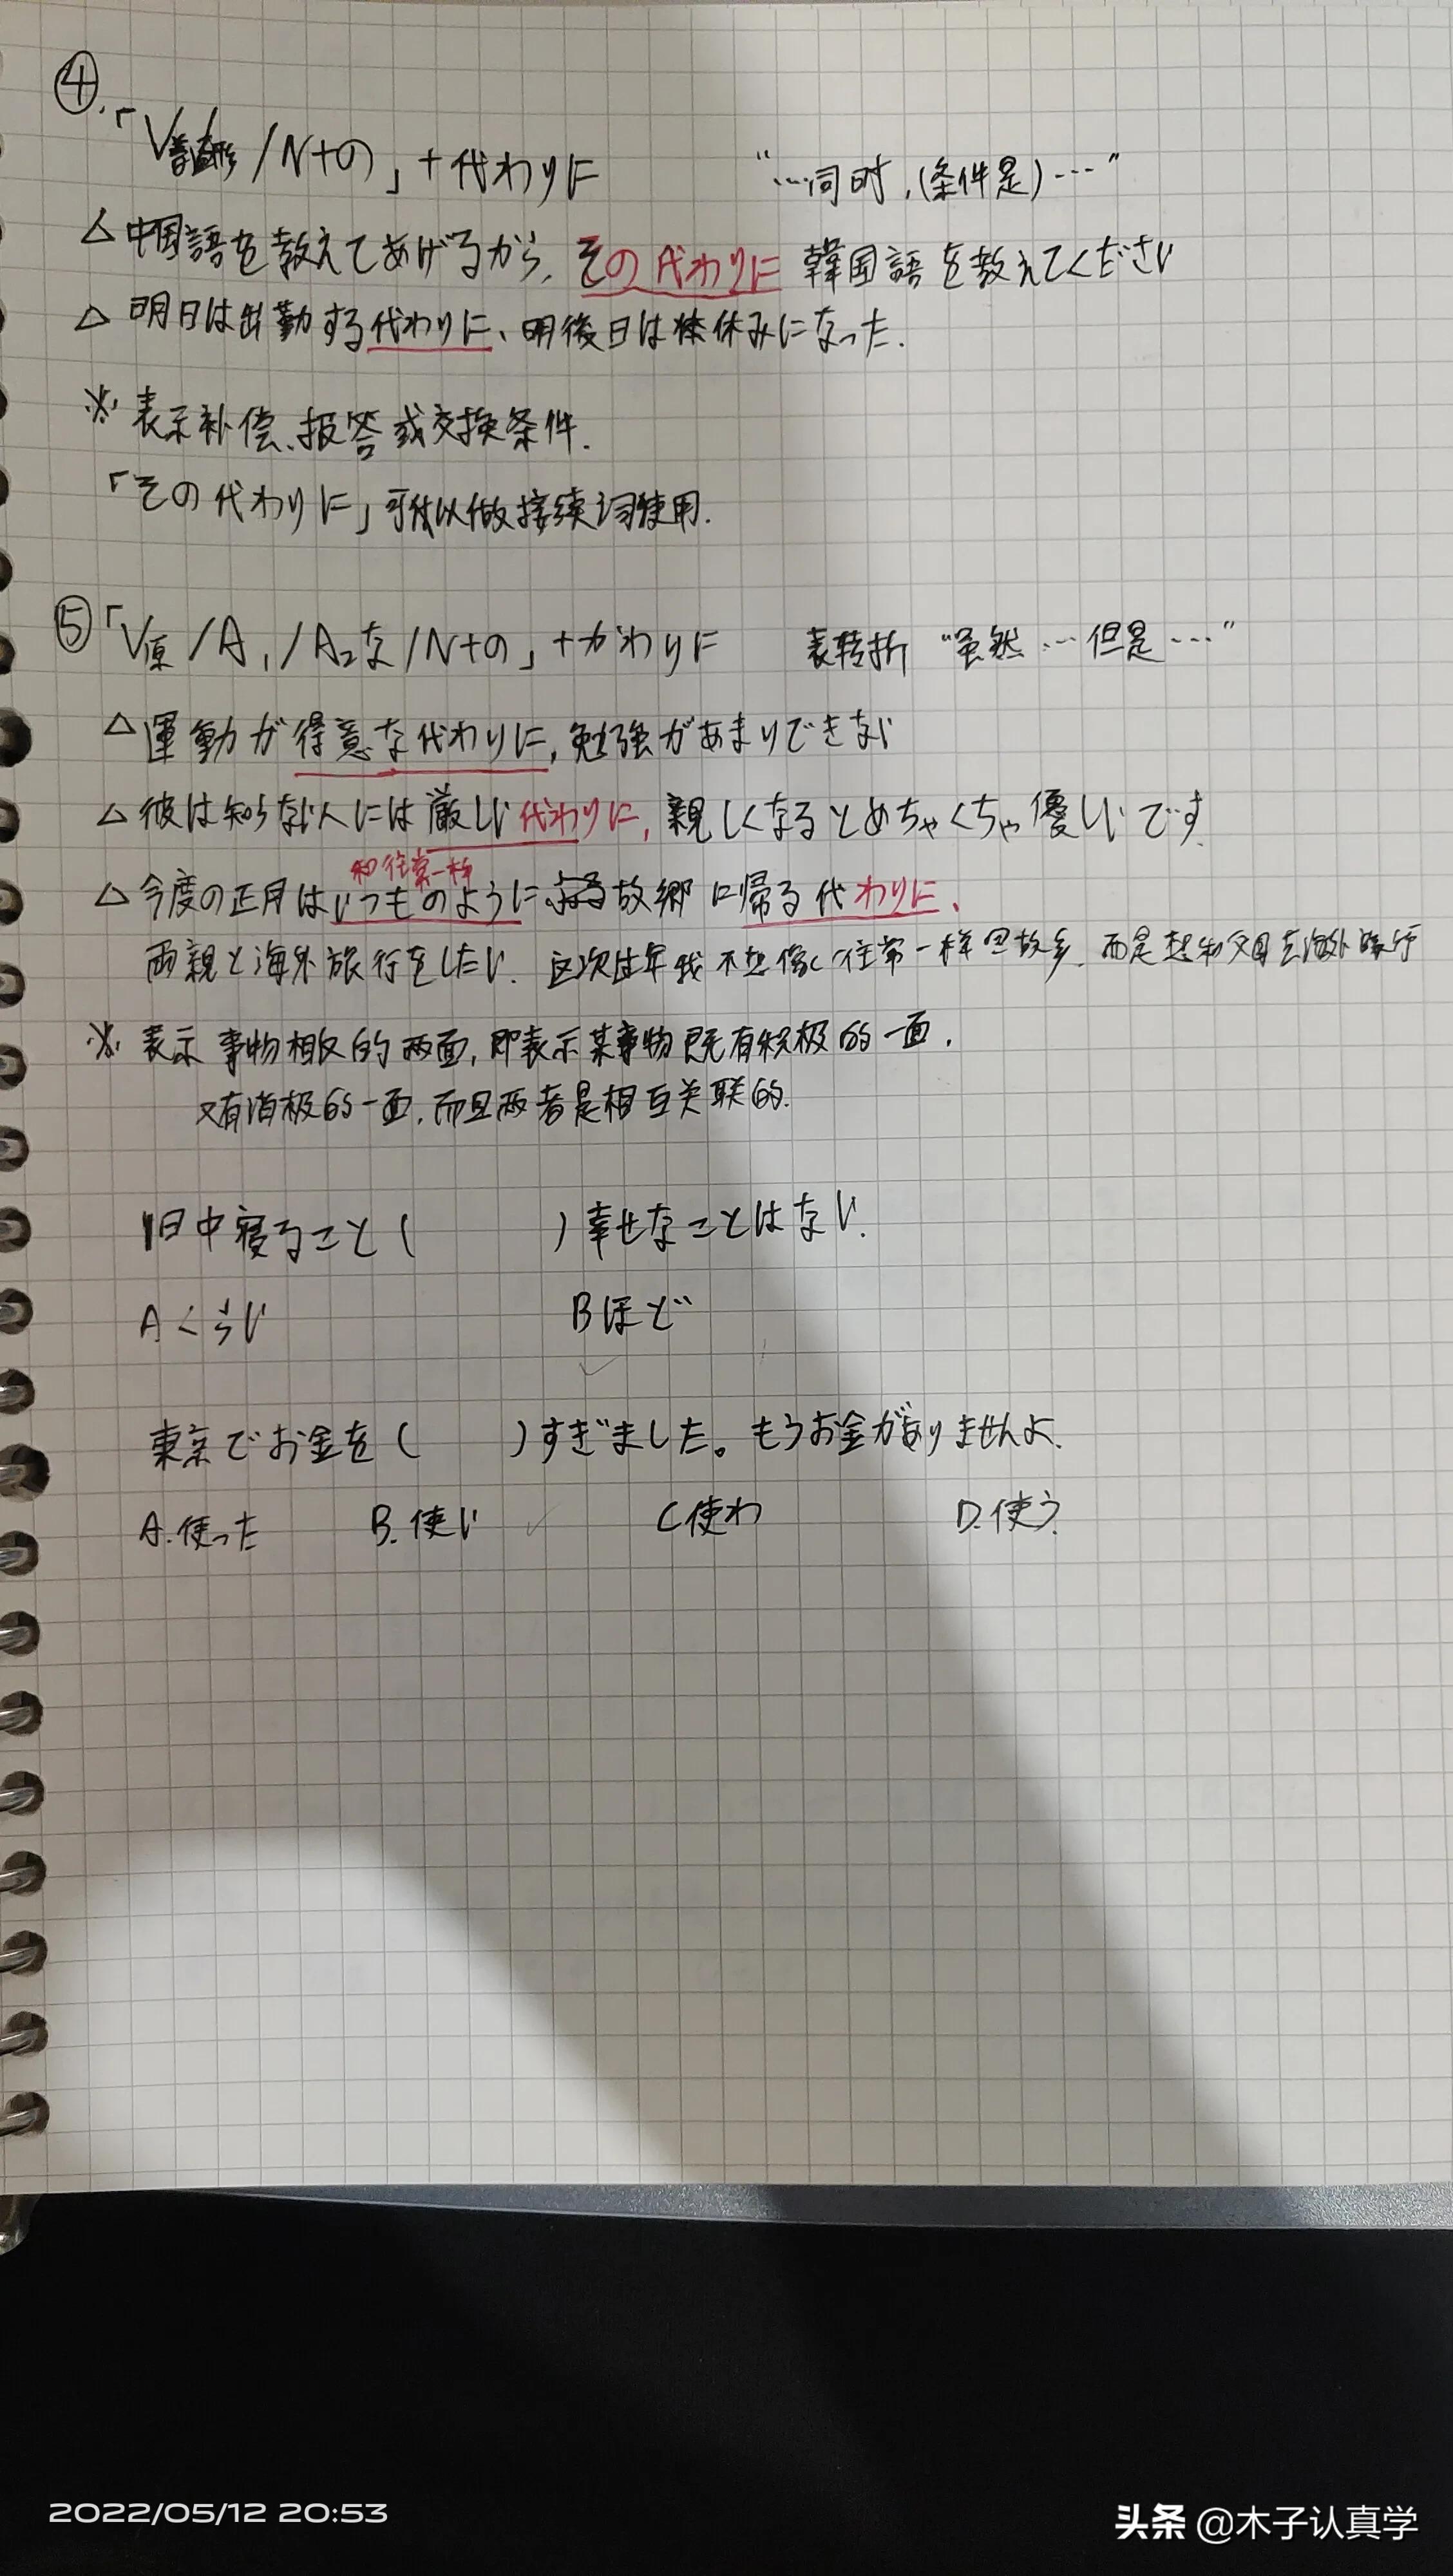 ④.「V普通形/N+の」+代わりに “…同时,(条件是)…”
△中国語を教えてあげるから,その代わりに韓国語を教えてください
△明日は出勤する代わりに、明後日は休みになった.
※表示补偿、报答或交换条件.
「その代わりに」可以做接续词使用.
⑤「V原/A₁/A₂な/N+の」+かわりに 表转折“虽然…但是…”
△運動が得意な代わりに,勉強があまりできない
△彼は知らない人には厳しい代わりに,親しくなるとめちゃくちゃ優しいです.
和往常一样
△今度の正月はいつものように故郷に帰る代わりに、
両親と海外旅行をしたい. 这次过年我不想像往常一样回故乡.而是想和父母去海外旅行
※表示事物相反的两面,即表示某事物既有积极的一面.
又有消极的一面.而且两者是相互关联的.
1日中寝ること( )幸せなことはない.
Aくらい Bほど
東京でお金を( )すぎました。もうお金がありませんよ.
A.使った B.使い C使わ D.使う
2022/05/12 20:53
头条@木子认真学